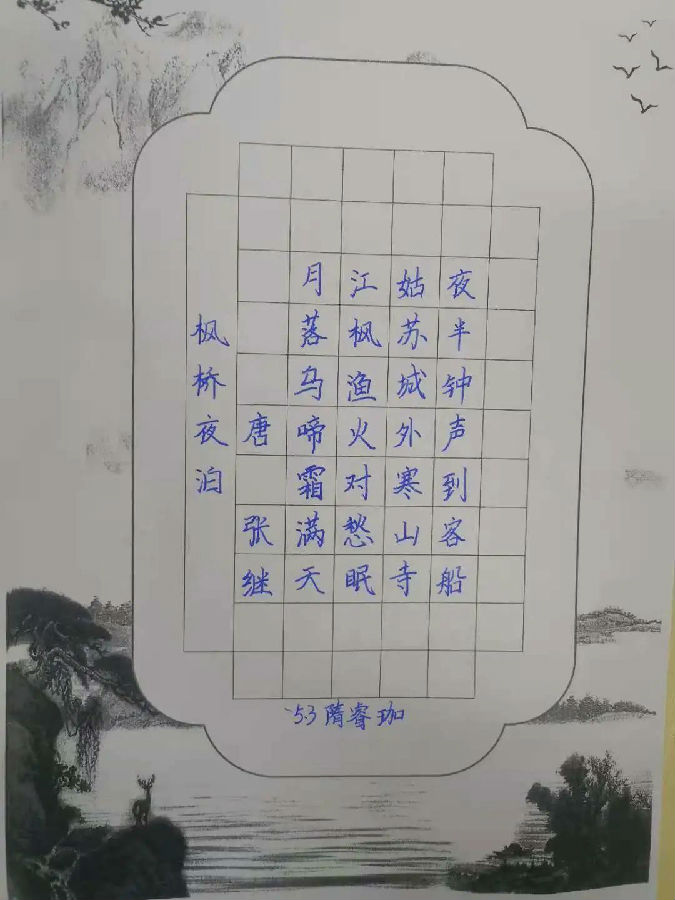 枫桥夜泊
唐 张继
月落乌啼霜满天
江枫渔火对愁眠
姑苏城外寒山寺
夜半钟声到客船
5.3 隋睿珈